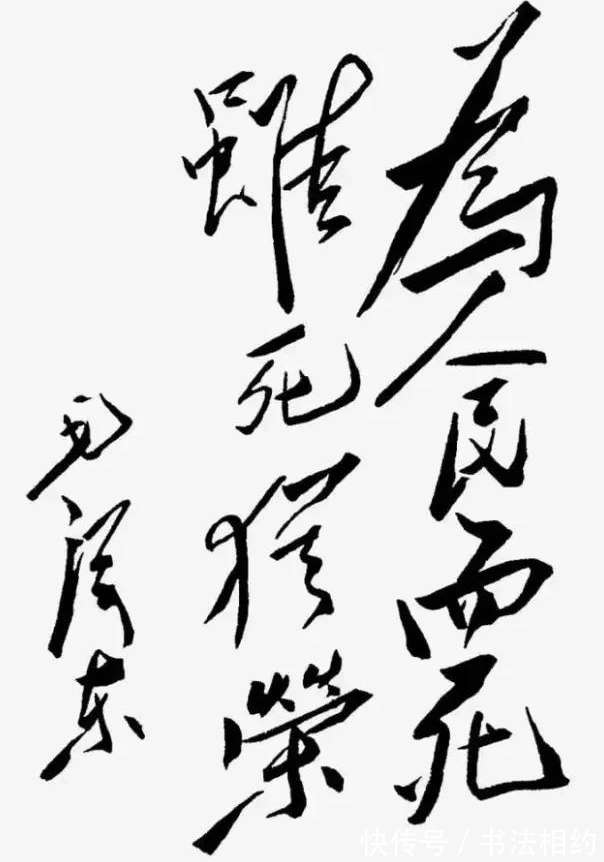 為人民而死
雖死猶榮
毛泽东
快传号 / 书法相约